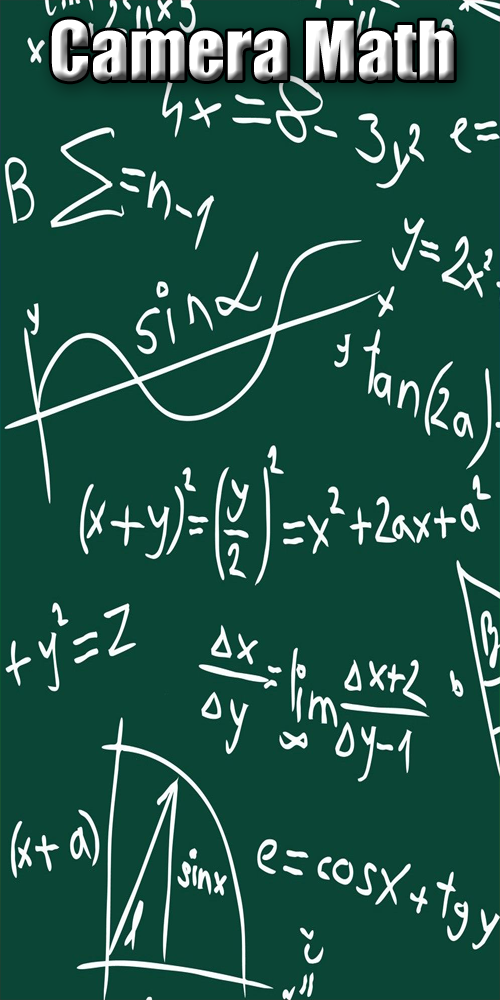 Camera Math
4x = 8 - 3y² e =
B Σ = n - 1
y = 2x²
y
sin α
x
y tan(2a)
(x + y)² = (y/2)² = x² + 2ax + a²
+ y² = Z
B
b
Δx/Δy = lim ∞ Δx+2/Δy-1
(x + a)
sinx
e = cosx + tg y